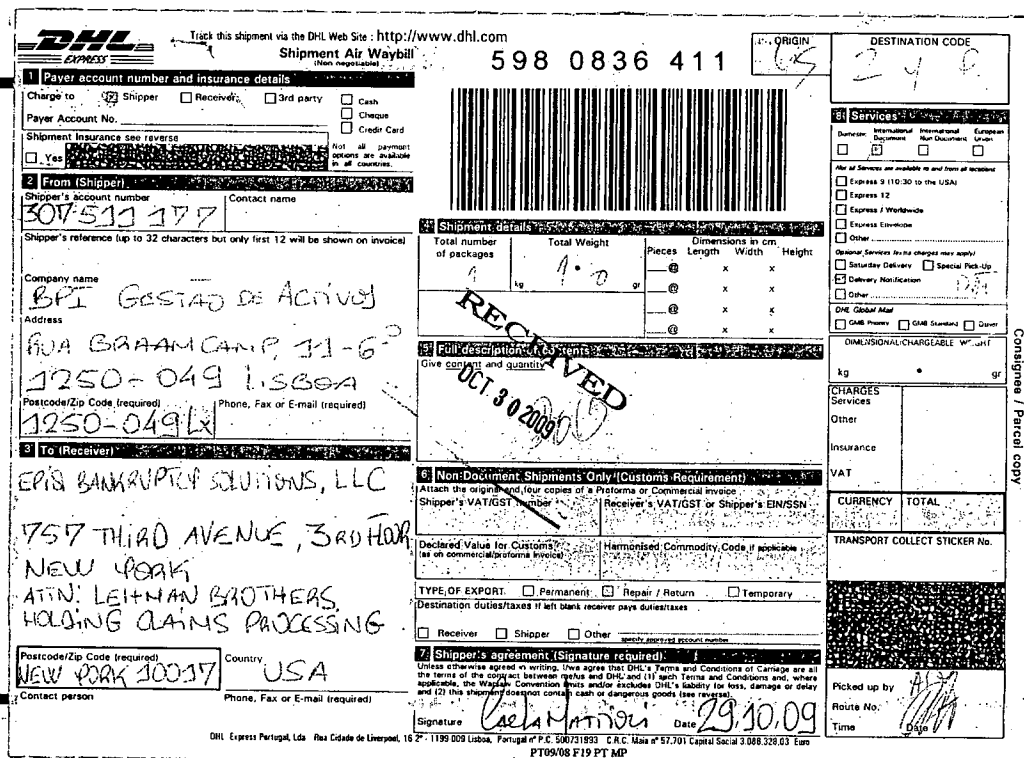 DHL
EXPRESS
Track this shipment via the DHL Web Site : http://www.dhl.com
Shipment Air Waybill
(Non negotiable)
598 0836 411
ORIGIN
LIS
DESTINATION CODE
1 Payer account number and insurance details
Charge to Shipper Receiver 3rd party
Cash
Cheque
Credit Card
Payer Account No.
Shipment Insurance see reverse
Yes
Not all payment options are available in all countries.
2 From (Shipper)
Shipper's account number
307511177
Contact name
Shipper's reference (up to 32 characters but only first 12 will be shown on invoice)
Company name
BPI GESTAO DE ACTIVOS
Address
RUA BRAAMCAMP, 11-6º
1250-049 LISBOA
Postcode/Zip Code (required)
1250-049 LX
Phone, Fax or E-mail (required)
3 To (Receiver)
EPIQ BANKRUPTCY SOLUTIONS, LLC
757 THIRD AVENUE, 3RD FLOOR
NEW YORK
ATTN: LEHMAN BROTHERS
HOLDING CLAIMS PROCESSING
Postcode/Zip Code (required)
NEW YORK 10017
Country
USA
Contact person
Phone, Fax or E-mail (required)
4 Shipment details
Total number of packages
1
Total Weight
1.0
kg gr
Dimensions in cm
Pieces Length Width Height
@ x x
@ x x
@ x x
@ x x
5 Full description of contents
Give content and quantity
RECEIVED
OCT 30 2009
6 Non-Document Shipments Only (Customs Requirement)
Attach the original and four copies of a Proforma or Commercial invoice
Shipper's VAT/GST number
Receiver's VAT/GST or Shipper's EIN/SSN
Declared Value for Customs
(as on commercial/proforma invoice)
Harmonised Commodity Code if applicable
TYPE OF EXPORT Permanent Repair / Return Temporary
Destination duties/taxes If left blank receiver pays duties/taxes
Receiver Shipper Other
specify approved account number
7 Shipper's agreement (Signature required)
Unless otherwise agreed in writing, I/we agree that DHL's Terms and Conditions of Carriage are all
the terms of the contract between me/us and DHL and (1) such Terms and Conditions and, where
applicable, the Warsaw Convention limits and/or excludes DHL's liability for loss, damage or delay
and (2) this shipment does not contain cash or dangerous goods (see reverse).
Signature Date 29.10.09
8 Services
Domestic
International Document
International Non Document
European Union
Not all Services are available to and from all locations
Express 9 (10:30 to the USA)
Express 12
Express / Worldwide
Express Envelope
Other
Optional Services (extra charges may apply)
Saturday Delivery Special Pick-Up
Delivery Notification
Other
DHL Global Mail
GMB Priority GMB Standard Other
DIMENSIONAL/CHARGEABLE WEIGHT
kg . gr
CHARGES
Services
Other
Insurance
VAT
CURRENCY TOTAL
TRANSPORT COLLECT STICKER No.
Picked up by
Route No.
Time Date
Consignee / Parcel copy
DHL Express Portugal, Lda Rua Cidade de Liverpool, 16 2º - 1199 009 Lisboa, Portugal nº P.C. 500731993 C.R.C. Maia nº 57.701 Capital Social 3.088.328,03 Euro
PT09/08 F19 PT MP